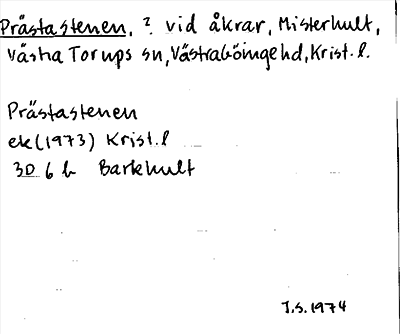 Prästastenen, ? vid åkrar, Misterhult,
Västra Torups sn, Västra Göinge hd, Krist. l.
Prästastenen
ek (1973) Krist. l
3D 6 b Barkhult
J.S. 1974